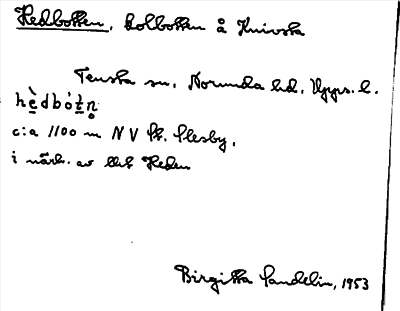 Hedbotten, kolbotten å Knivsta
Tensta sn. Norunda hd. Upps. l.
hèdbót̠n̥
c:a 1100 m NV St. Plesby,
i närh. av Heden
Birgitta Sandelin, 1953